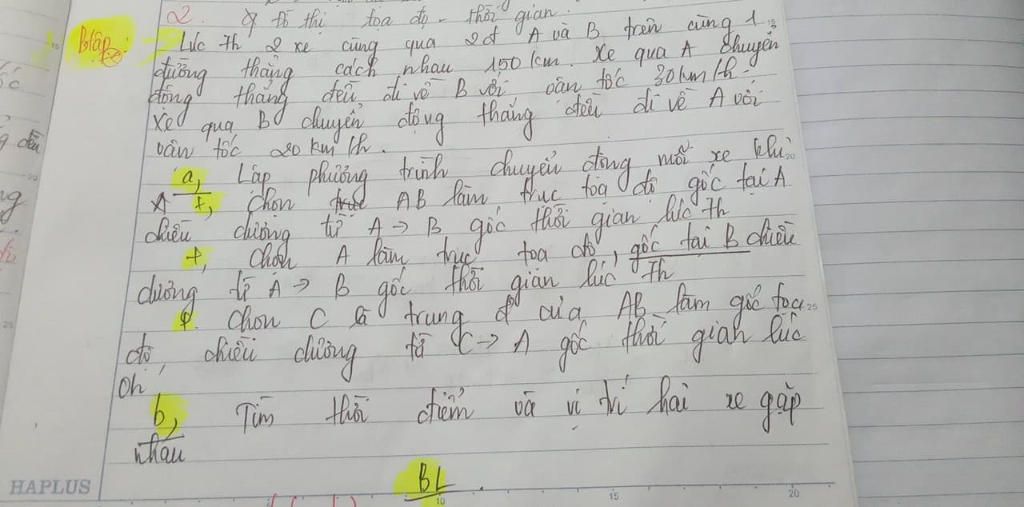 2. đồ thị tọa độ - thời gian.
Btập: Lúc 7h 2 xe cùng qua 2đ A và B trên cùng 1
đường thẳng cách nhau 150 km. Xe qua A chuyển
động thẳng đều đi về B với vân tốc 30km/h.
Xe qua B chuyển động thẳng đều đi về A với
vân tốc 20 km/h.
a, Lập phương trình chuyển động mỗi xe khi
+, Chọn AB làm trục tọa độ gốc tại A
chiều dương từ A → B gốc thời gian lúc 7h
+, Chọn A làm trục tọa độ, gốc tại B chiều
dương từ A → B gốc thời gian lúc 7h
Chọn C là trung đ của AB làm gốc tọa
độ, chiều dương từ C → A gốc thời gian lúc
0h
b, Tìm thời điểm và vị trí hai xe gặp
nhau
BL
HAPLUS
10 15 20